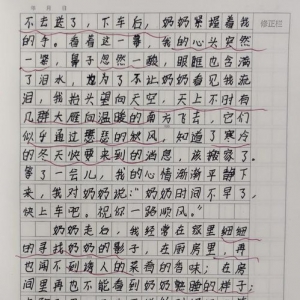 年 月 日
修正栏
不去送了，下车后，奶奶紧握着我
的手。看着这一幕，我的心头突然
一紧，鼻子忽然一酸，眼眶也含满
了泪水，为了不让奶奶看见我流
泪，我抬头望向天空，天上不时有
几群大雁向温暖的南方飞去，它们
似乎通过瑟瑟的秋风，知道了寒冷
的冬天快要来到的消息，该搬家了。
等了一会儿，我的心情渐渐平静下
来，我对奶奶说：“奶奶时间不早了，
快上车吧。祝你一路顺风。”
奶奶走后，我经常在家里细细
的寻找奶奶的影子，在厨房里，再
也闻不到诱人的菜肴的香味；在房
间里再也不能看到奶奶熟睡的样子；